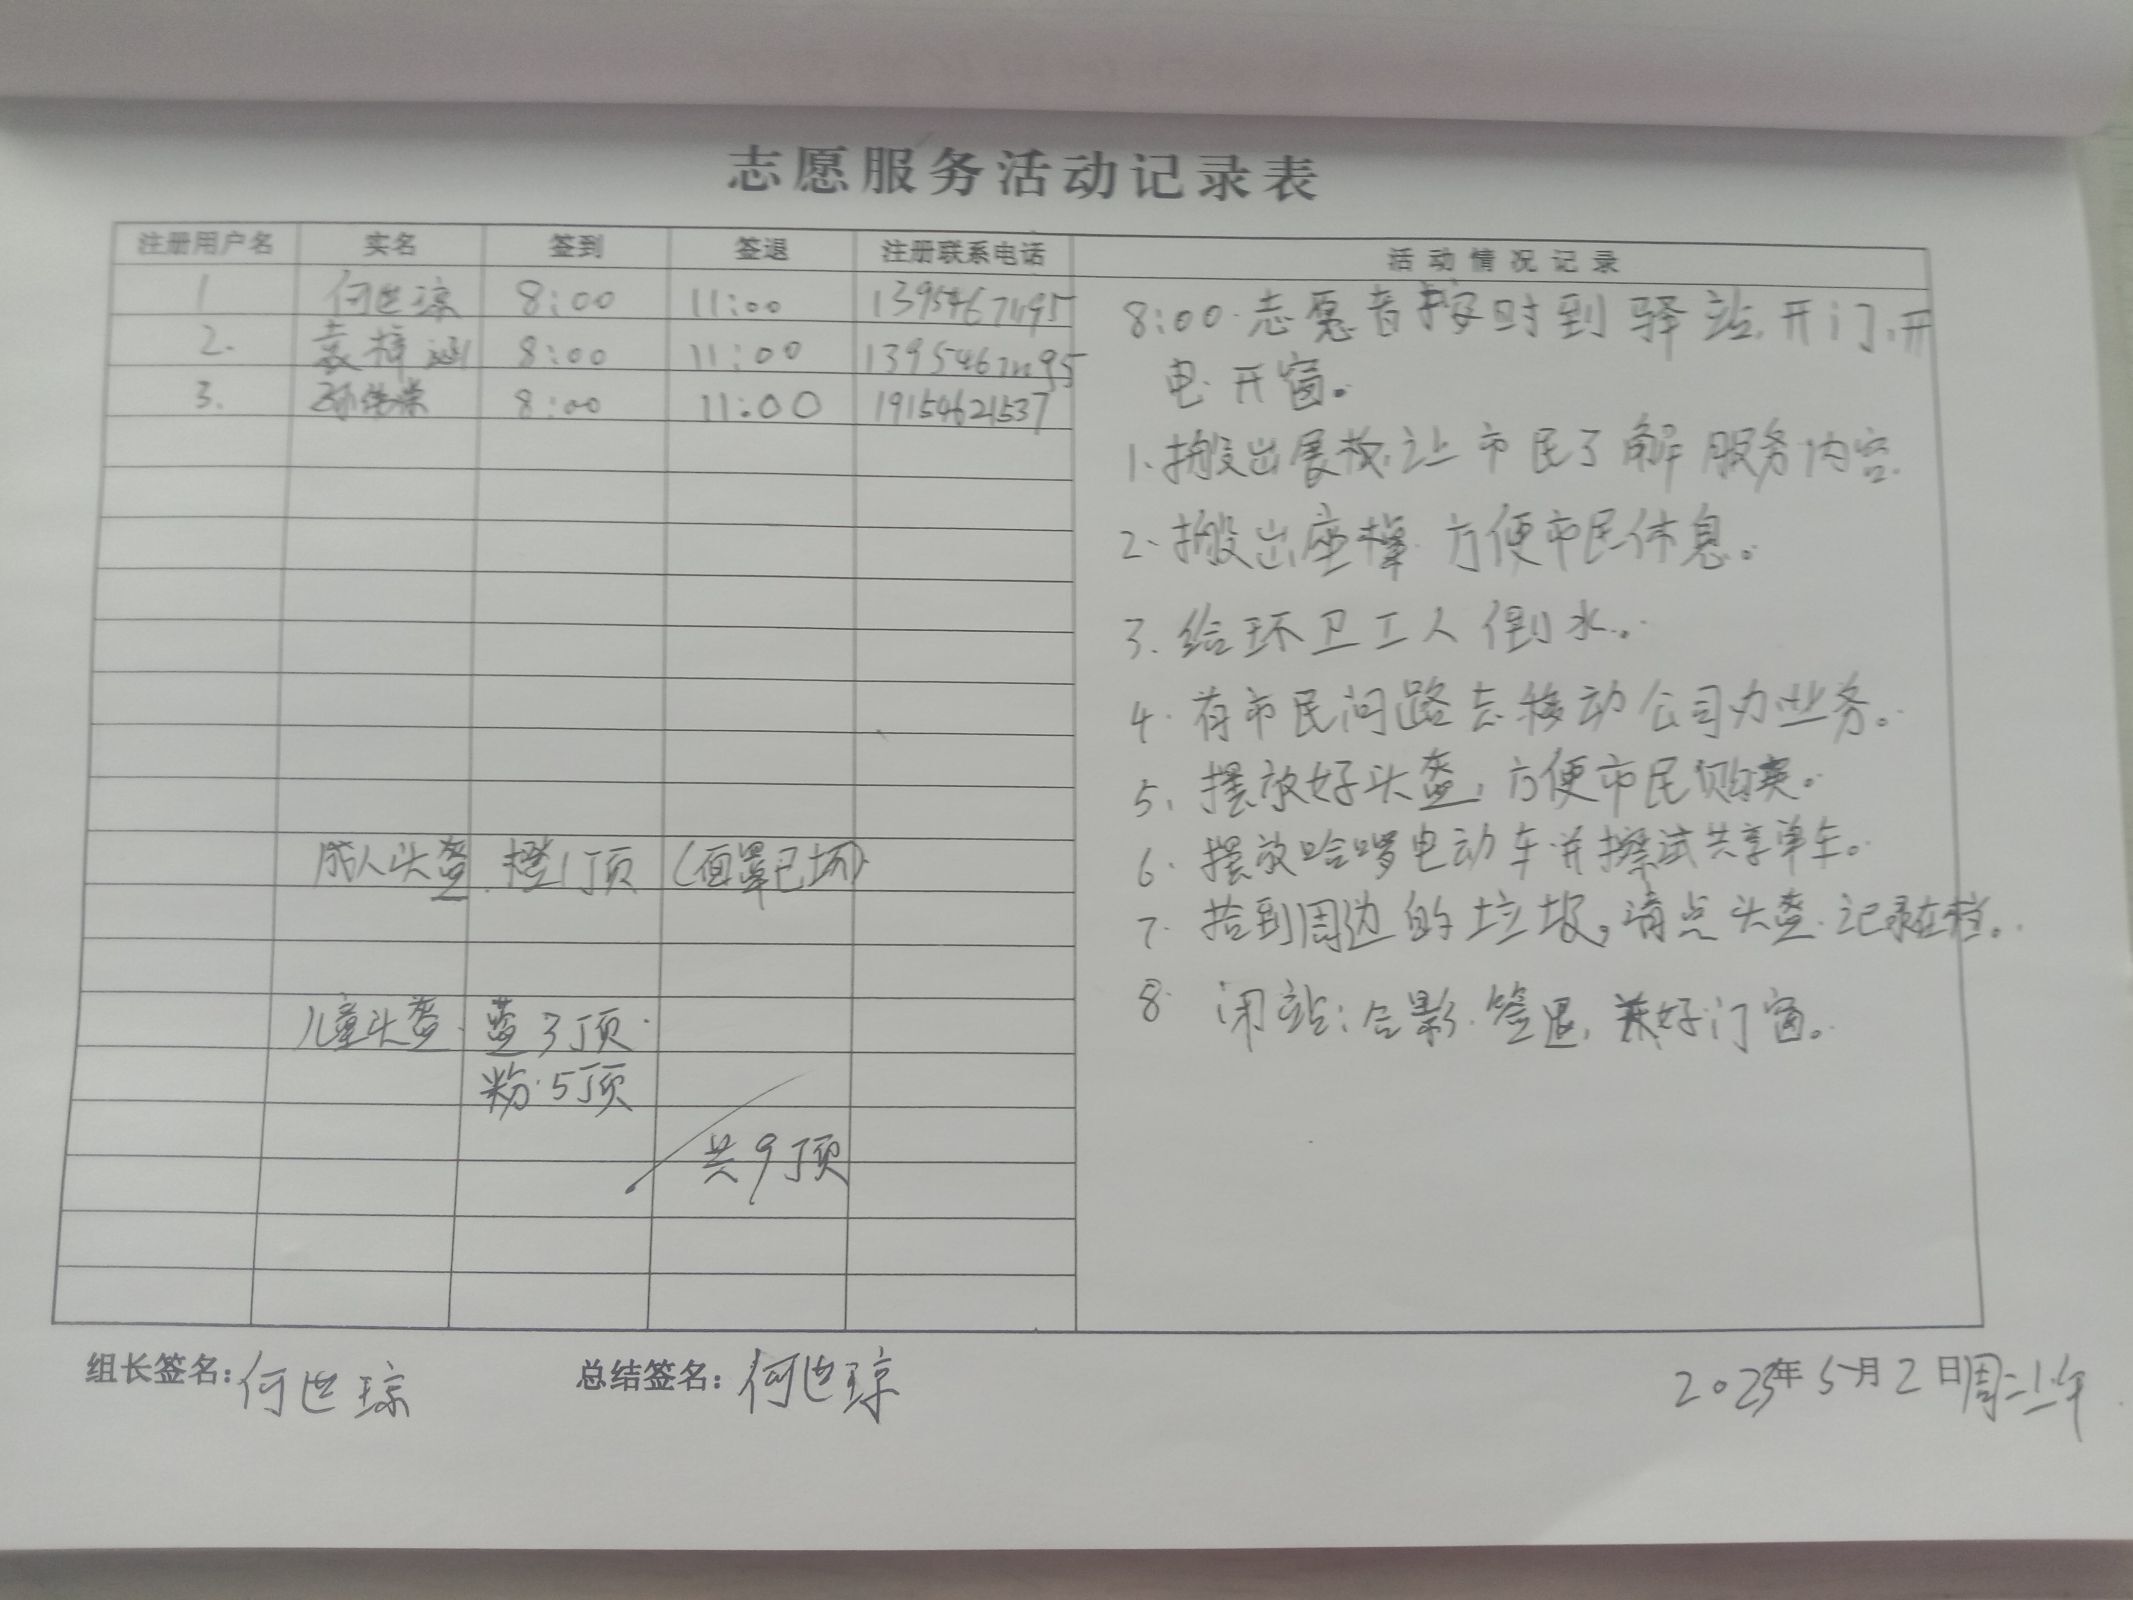 志愿服务活动记录表
注册用户名 实名 签到 签退 注册联系电话 活动情况记录
1 何世琼 8:00 11:00
2. 袁梓涵 8:00 11:00
3. 8:00 11:00 19154621537
8:00 志愿者按时到驿站,开门,开
电 开窗。
1、搬出展板,让市民了解服务内容.
2、搬出座椅 方便市民休息。
3. 给环卫工人倒水。
4. 有市民问路去移动公司办业务。
5、摆放好头盔,方便市民购买。
6. 摆放哈啰电动车并擦试共享单车。
7. 拾到周边的垃圾,清点头盔.记录在档。
8 闭站:合影.签退,关好门窗。
成人头盔.橙1顶(面罩已坏)
儿童头盔.蓝3顶.
粉.5顶
共9顶
组长签名:何世琼 总结签名:何世琼 2023年5月2日周二上午